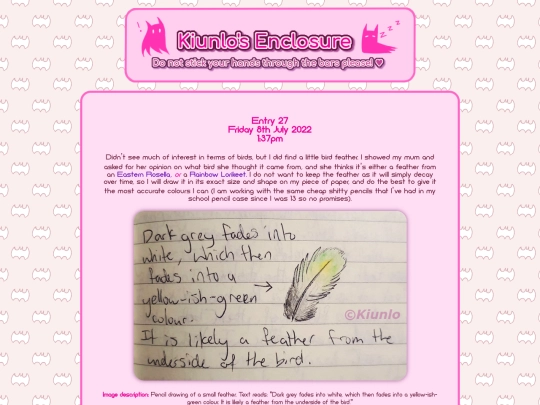 Kiunlo's Enclosure
Do not stick your hands through the bars please! ♡
Entry 27
Friday 8th July 2022
1:37pm
Didn't see much of interest in terms of birds, but I did find a little bird feather. I showed my mum and
asked for her opinion on what bird she thought it came from, and she thinks it's either a feather from
an Eastern Rosella, or a Rainbow Lorikeet. I do not want to keep the feather as it will simply decay
over time, so I will draw it in its exact size and shape on my piece of paper, and do the best to give it
the most accurate colours I can (I am working with the same cheap shitty pencils that I've had in my
school pencil case since I was 13 so no promises).
Dark grey fades into
white, which then
fades into a
yellow-ish-green
colour.
It is likely a feather from the
underside of the bird.
©Kiunlo
Image description: Pencil drawing of a small feather. Text reads: "Dark grey fades into white, which then fades into a yellow-ish-
green colour. It is likely a feather from the underside of the bird."